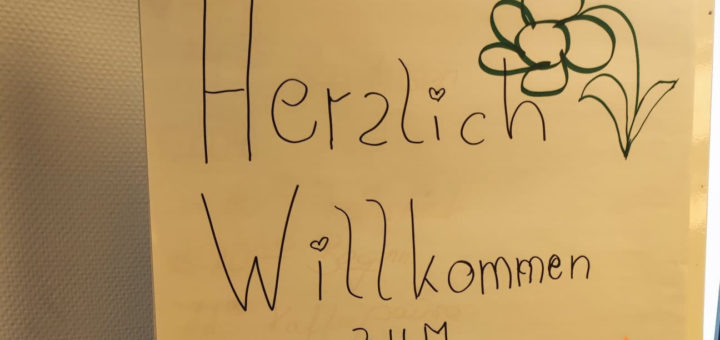 Herzlich
Willkommen
zum